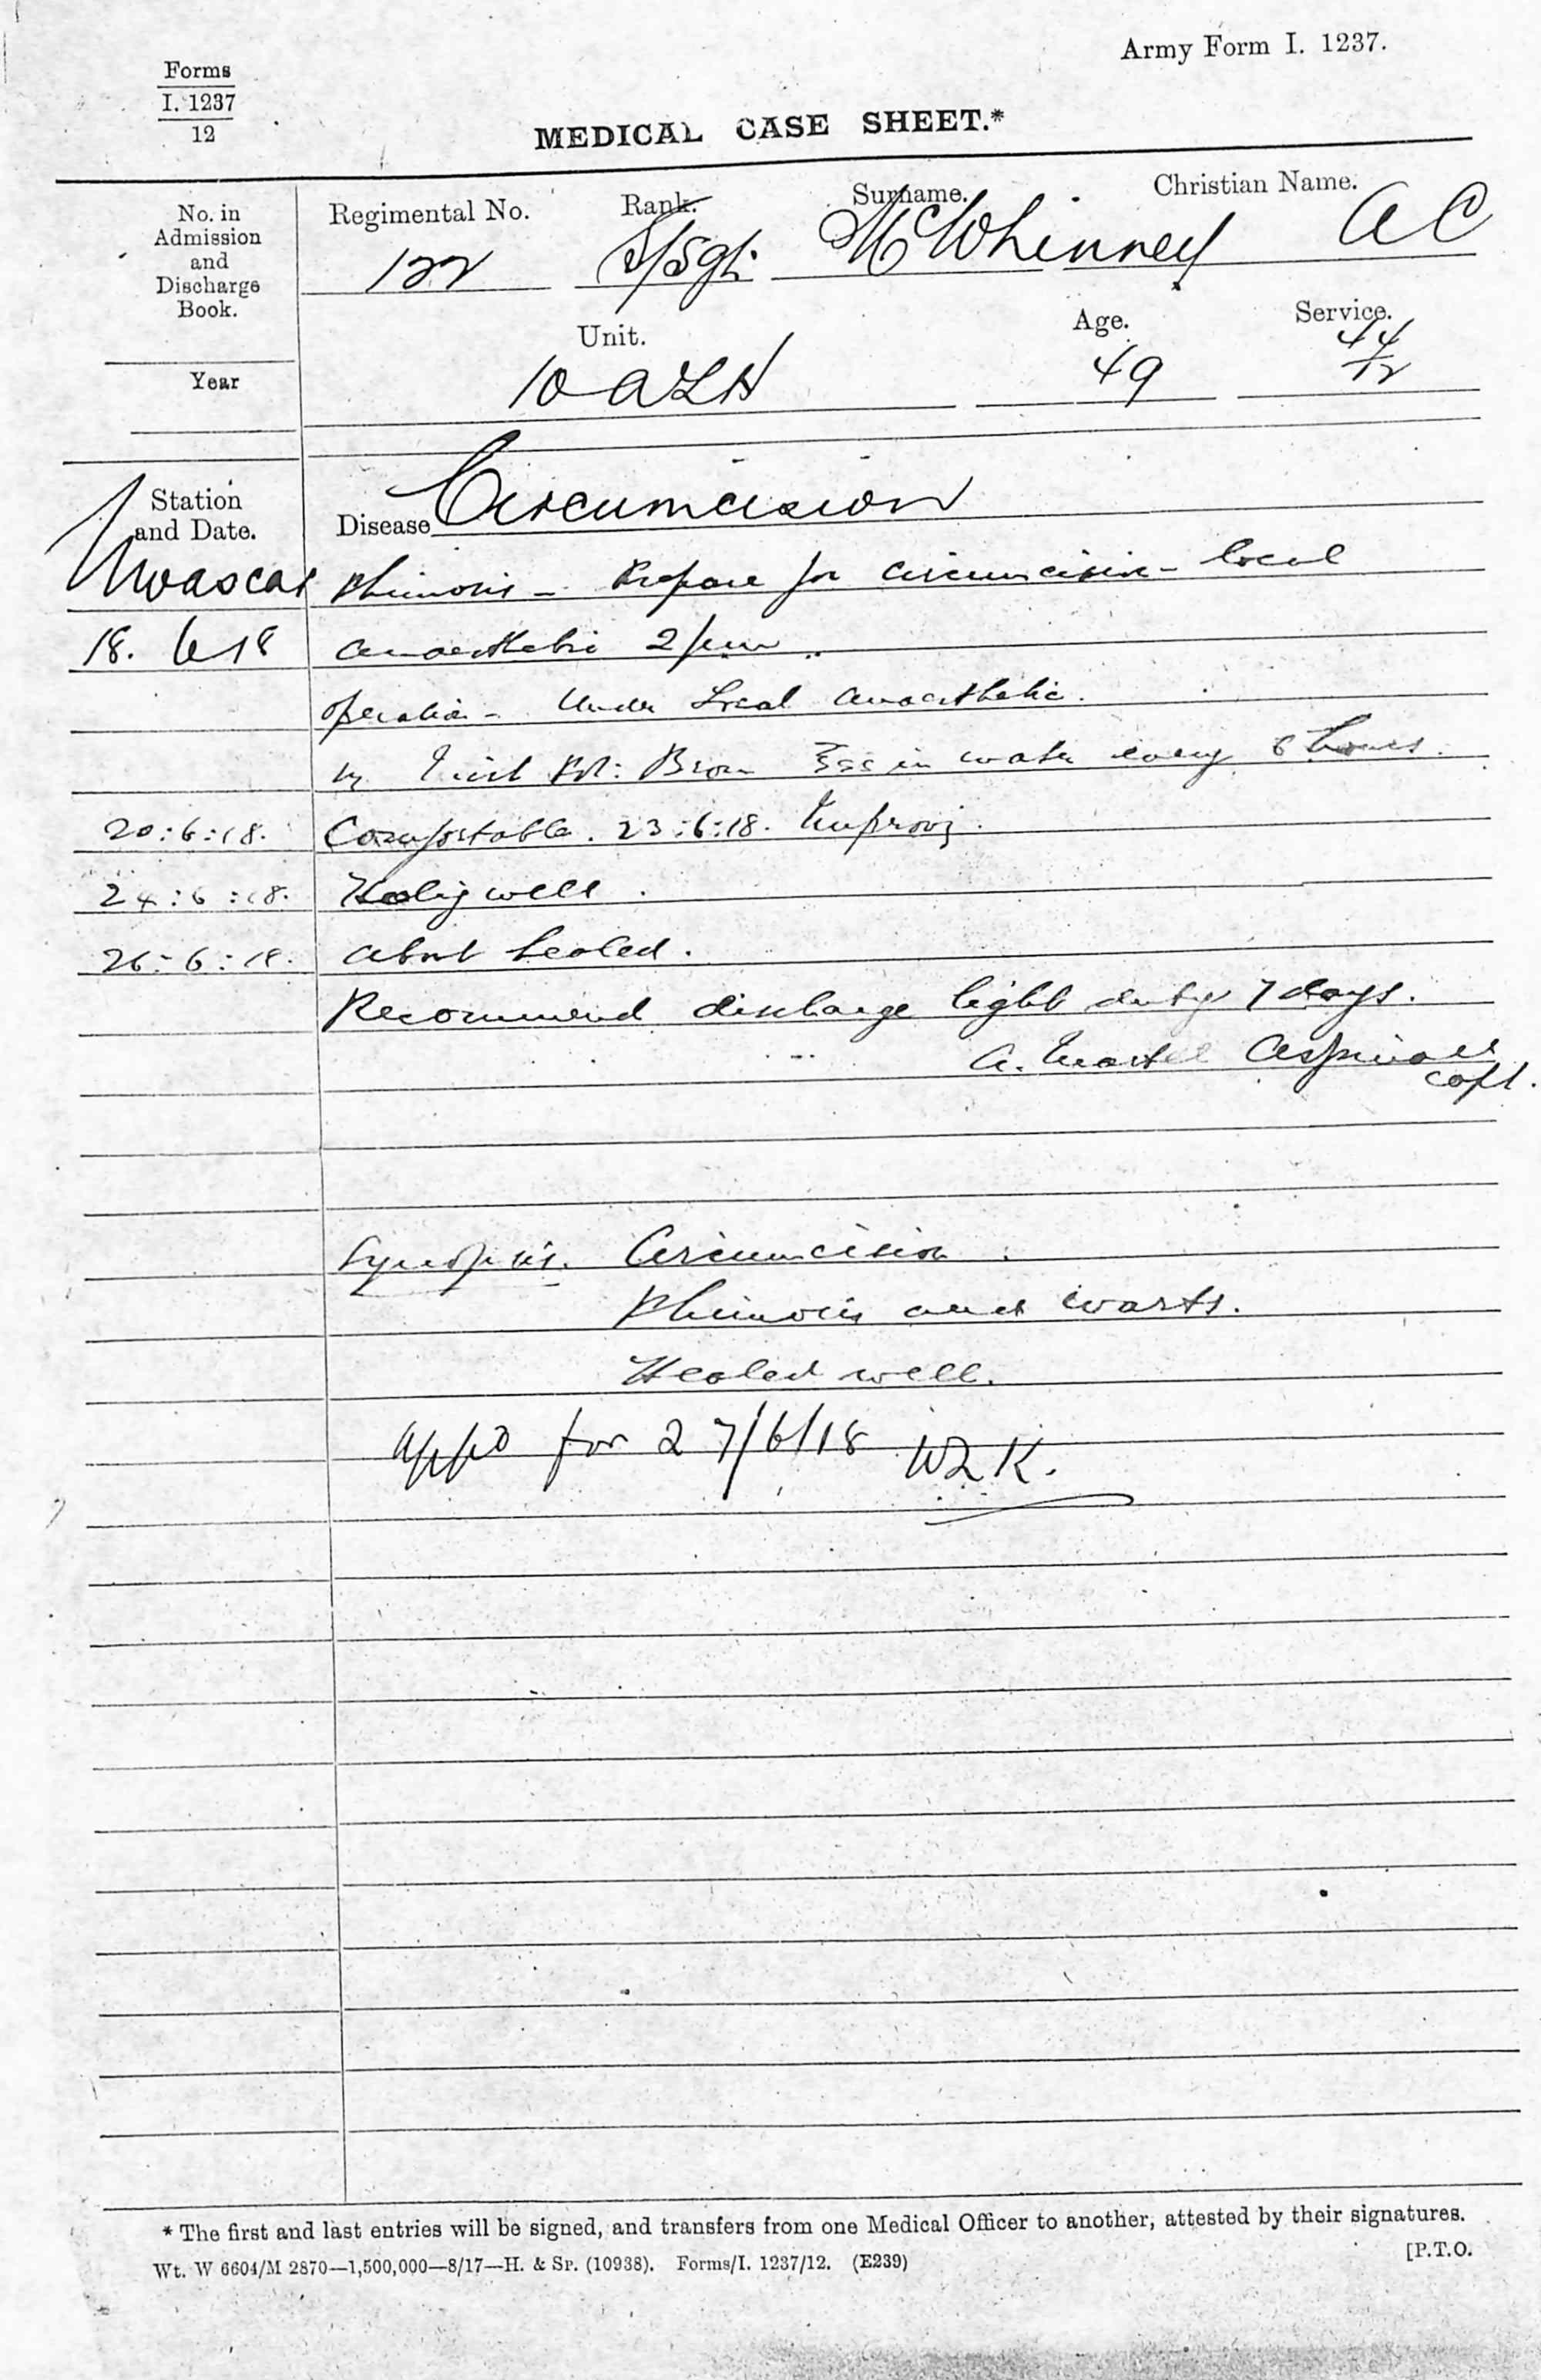 Army Form I. 1237.
Forms
I. 1237
12
MEDICAL CASE SHEET.*
No. in Admission and Discharge Book.
Regimental No. Rank. Surname. Christian Name.
122 S/Sgt. McWhinney A C
Unit. Age. Service.
Year
10 ALH 49 44/12
Station and Date.
Disease Circumcision
Moascar Phimosis - Prepare for circumcision - local
18. 6 18 anaesthetic 2 pm
Operation - Under Local Anaesthetic.
Pot: Brom ʒss in water every 6 hours.
20:6:18. Comfortable. 23:6:18. Improvg.
24:6:18. Healig well.
26:6:18. about healed.
Recommend discharge light duty 7 days.
A. Aspinall
Capt.
Synopsis. Circumcision.
Phimosis and warts.
Healed well.
appd for 27/6/18 W.L.K.
* The first and last entries will be signed, and transfers from one Medical Officer to another, attested by their signatures.
Wt. W 6604/M 2870—1,500,000—8/17—H. & Sp. (10938). Forms/I. 1237/12. (E239)
[P.T.O.